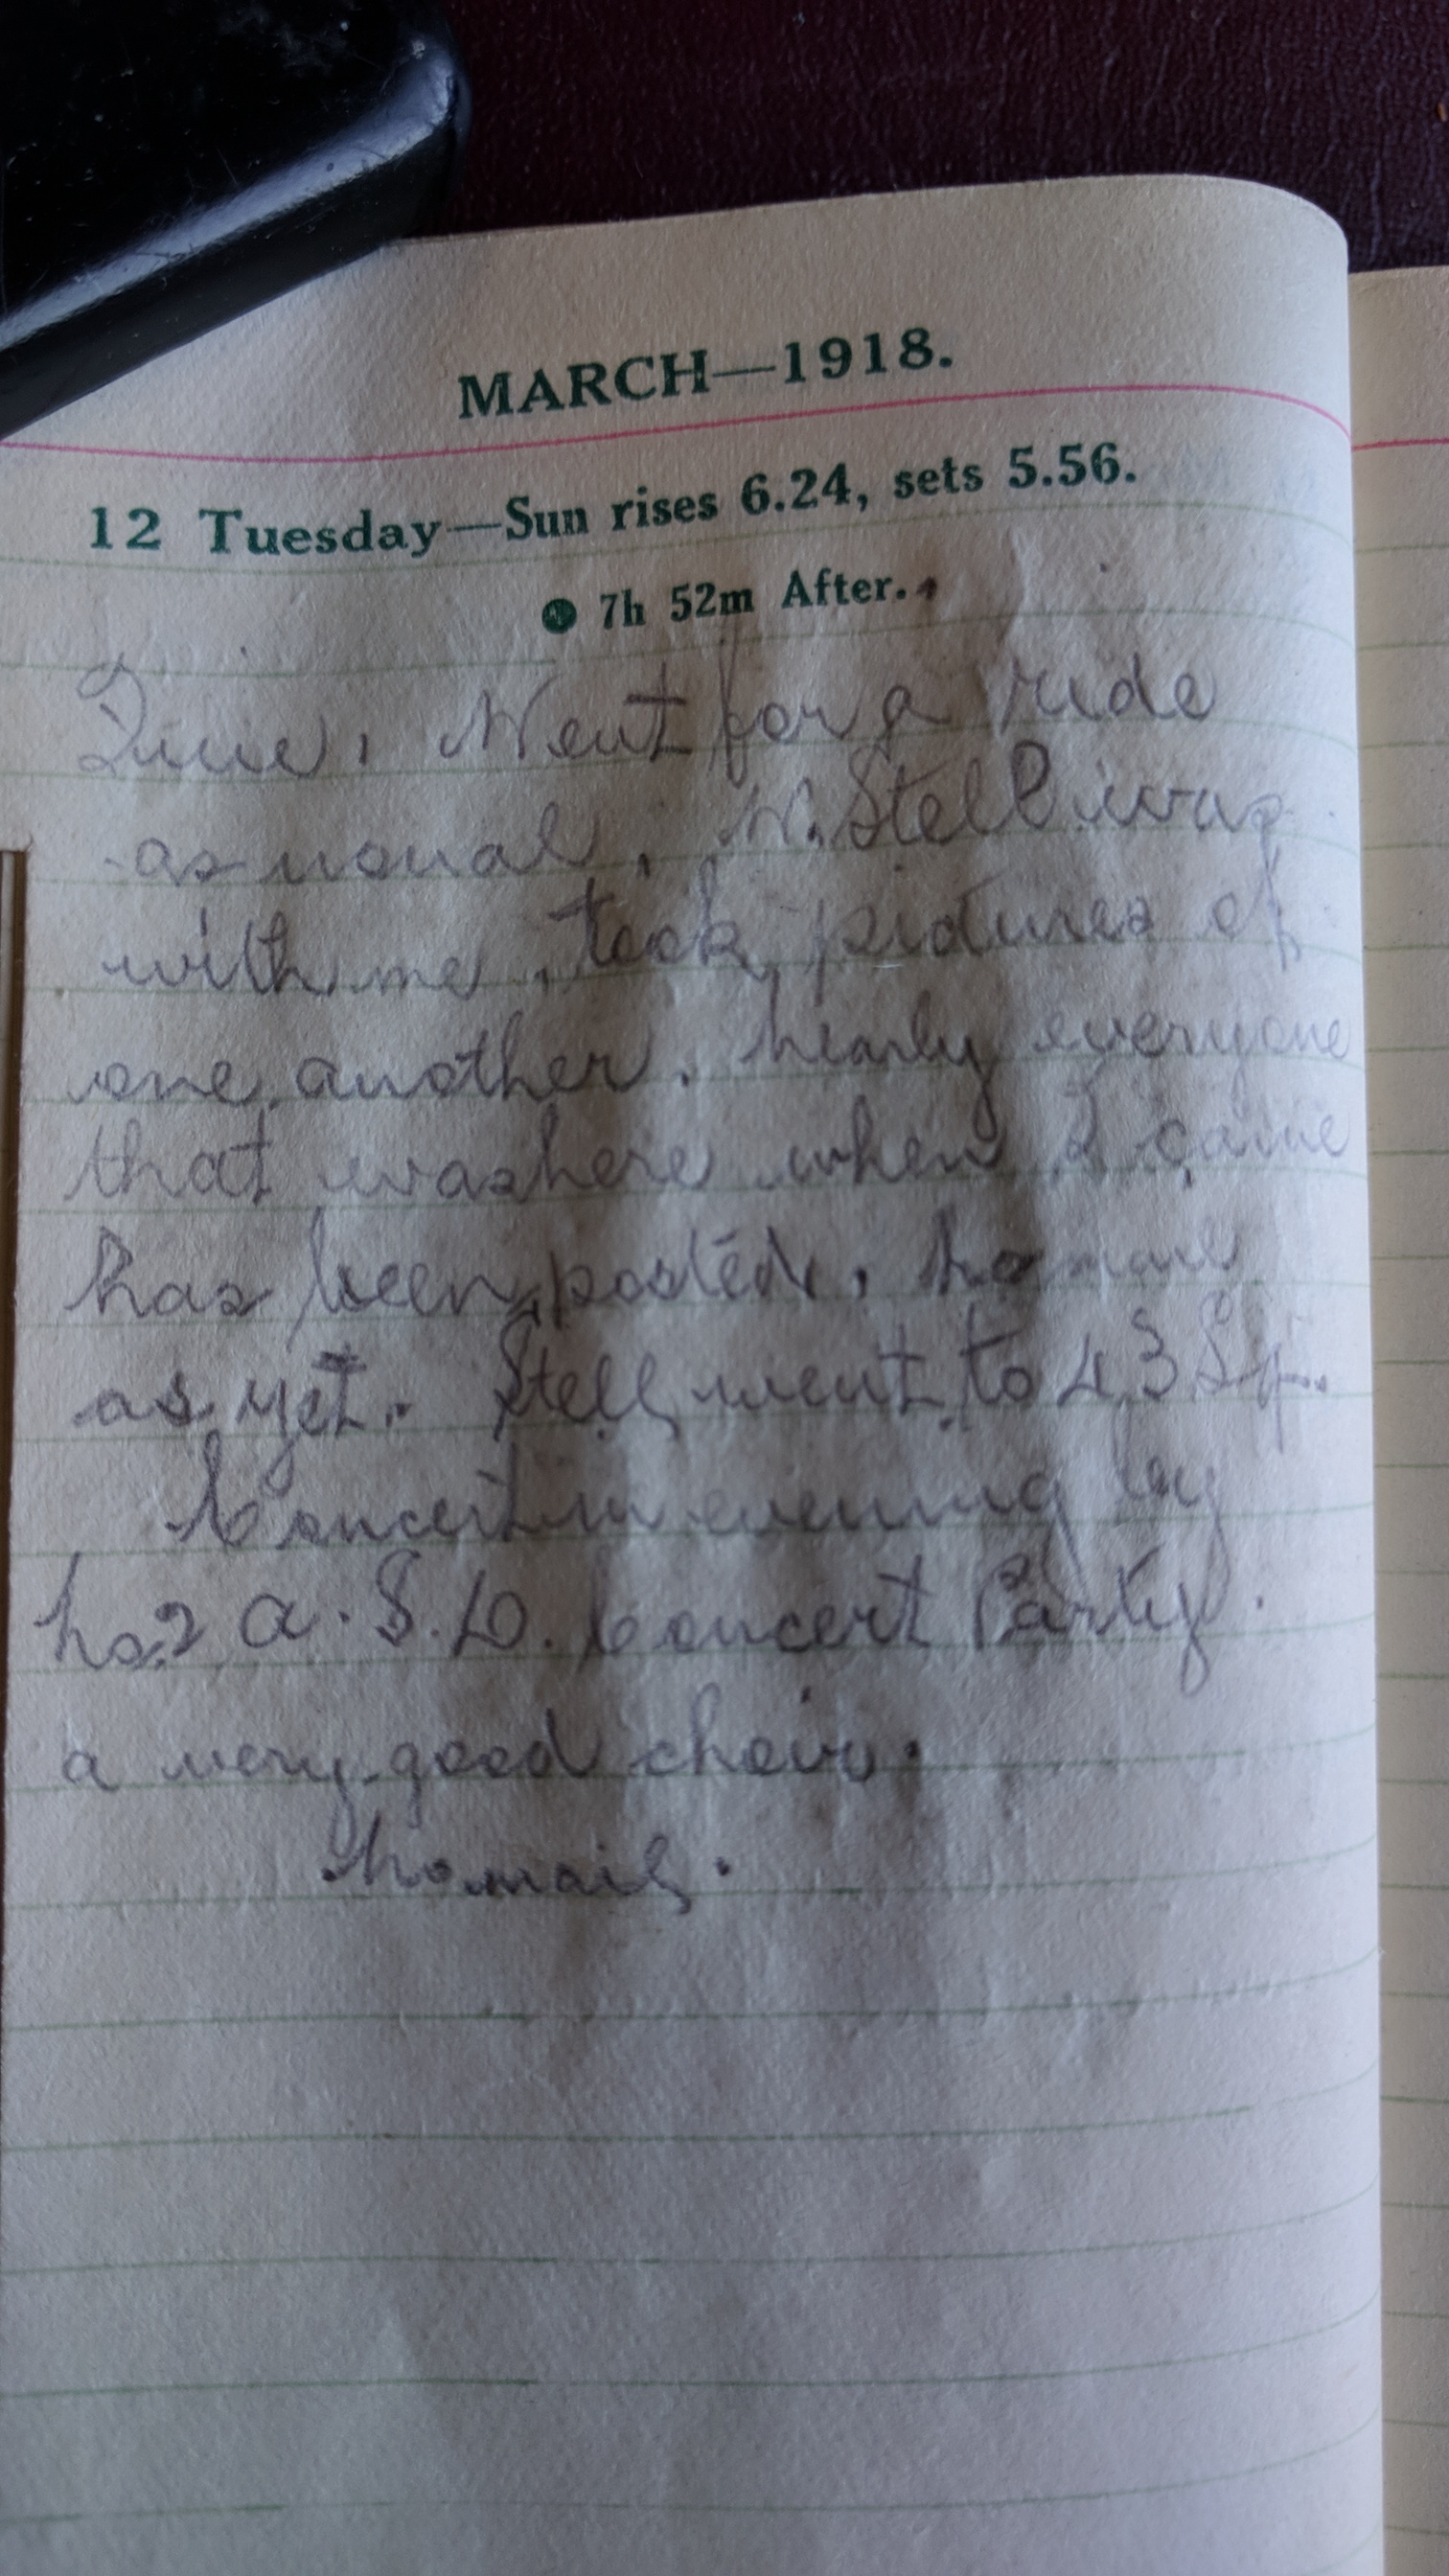 MARCH—1918.
12 Tuesday—Sun rises 6.24, sets 5.56.
● 7h 52m After.
Went for a ride
as usual. W. Stell was
with me, took pictures of
one another. nearly everyone
that was here when I came
has been posted. no
as yet. Stell went to 43 Sq.
Concert in evening by
No 2 A.S.D. Concert Party.
a very good choir.
No mail.